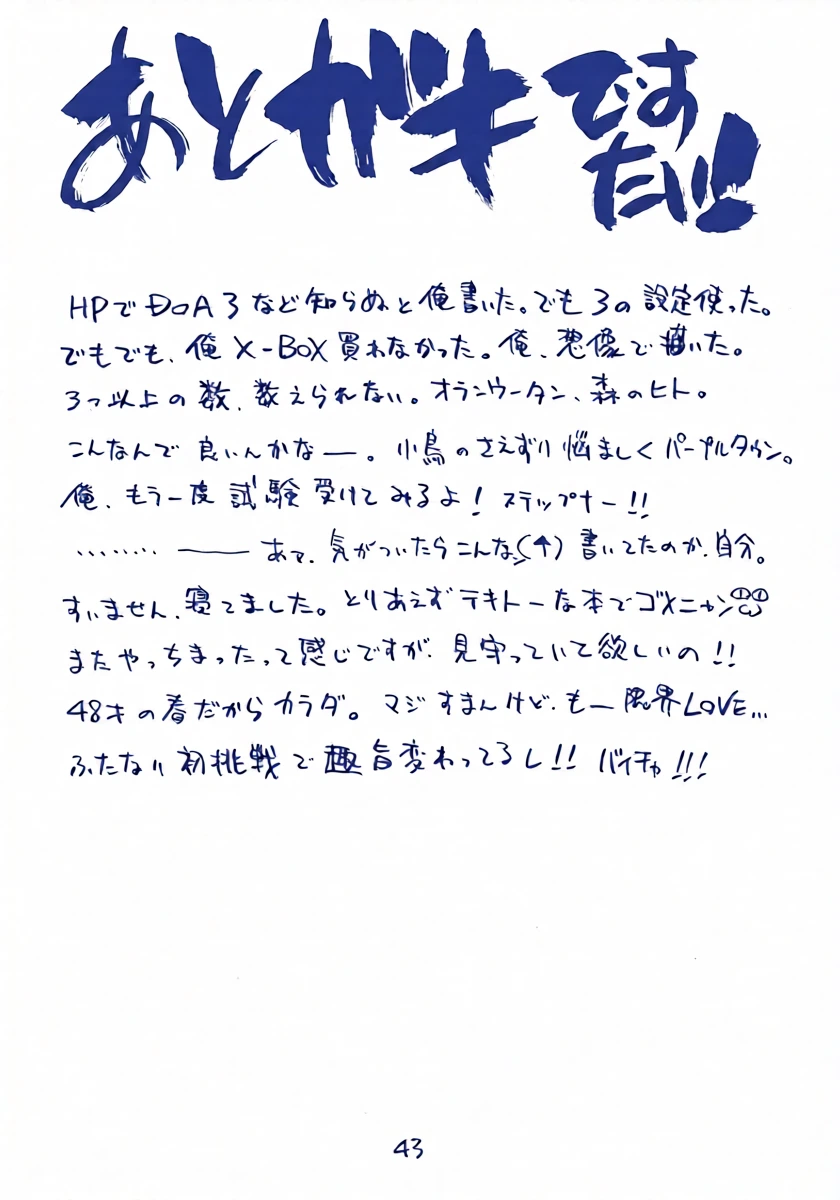 あとがきですたい!!
HPでDOA3など知らぬと俺書いた。でも3の設定使った。
でもでも、俺X-BOX買わなかった。俺、想像で描いた。
3つ以上の数、数えられない。オランウータン、森のヒト。
こんなんで良いんかなー。小鳥のさえずり悩ましくパープルタウン。
俺、もう一度試験受けてみるよ!ステップナー!!
……… ―― あて、気がついたらこんな(↑)書いてたのか、自分。
すいません、寝てました。とりあえずテキトーな本でゴメニャン
またやっちまったって感じですが、見守っていて欲しいの!!
48才の春だからカラダ。マジすまんけど、もー限界LOVE…
ふたなり初挑戦で趣旨変わってるし!!バイチャ!!!
43